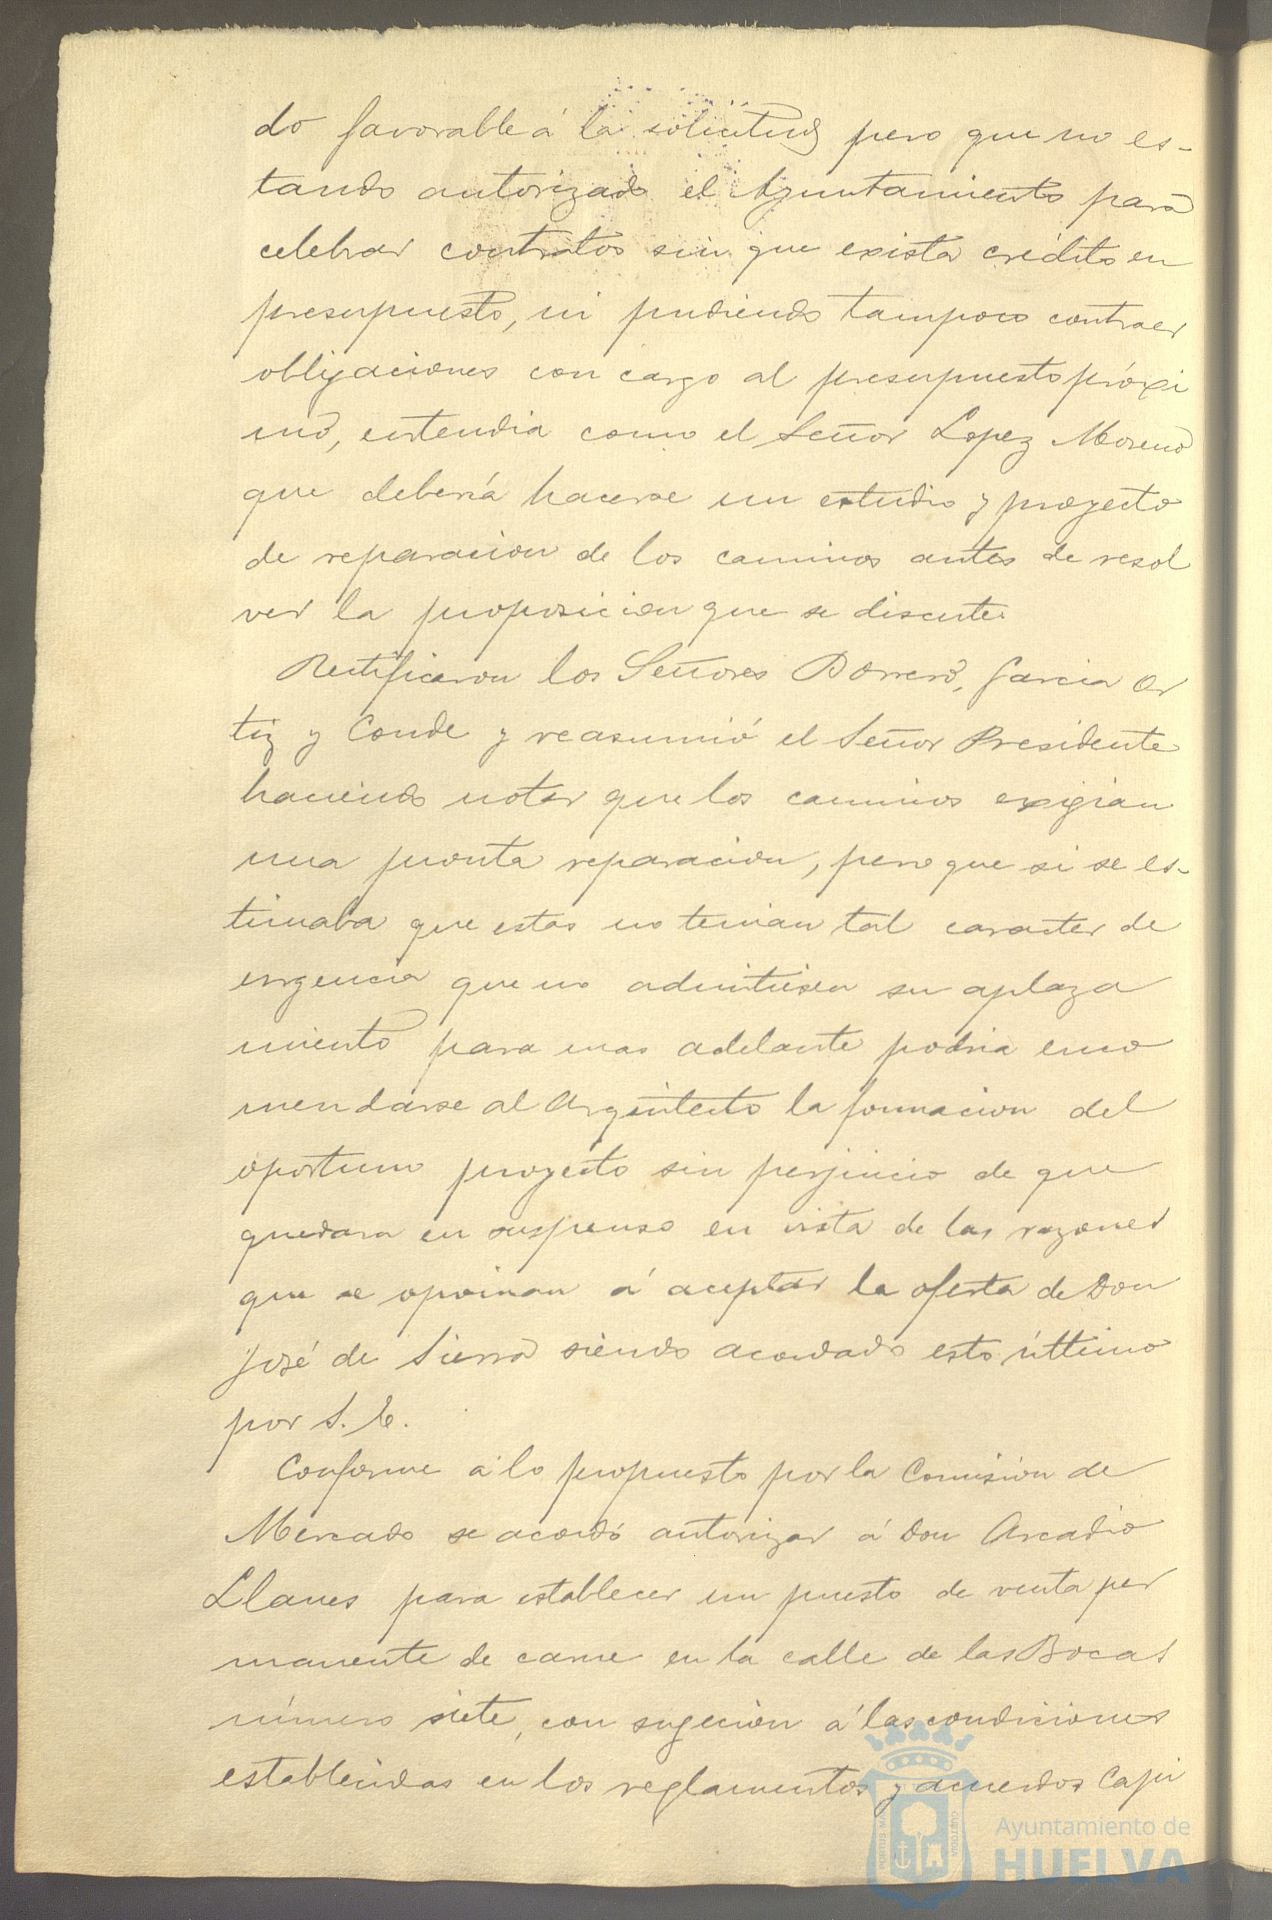 do favorable á la solicitud pero que no es-
tando autorizado el Ayuntamiento para
celebrar contratos sin que exista crédito en
presupuesto, ni pudiendo tampoco contraer
obligaciones con cargo al presupuesto próxi
mo, entendia como el Señor Lopez Moreno
que debería hacerse un estudio y proyecto
de reparacion de los caminos antes de resol
ver la proposicion que se discute.
Rectificaron los Señores Borrero, Garcia Or
tiz y Conde y reasumió el Señor Presidente
haciendo notar que los caminos exigian
una pronta reparacion, pero que si se es-
timaba que estas no tenian tal caracter de
urgencia que no admitiesen su aplaza
miento para mas adelante podria enco
mendarse al Arquitecto la formacion del
oportuno proyecto sin perjuicio de que
quedara en suspenso en vista de las razones
que se oponian á aceptar la oferta de Don
José de Sierra siendo acordado esto último
por S. E.
Conforme á lo propuesto por la Comision de
Mercado se acordó autorizar á Don Arcadio
Llanes para establecer un puesto de venta per
manente de carne en la calle de las Bocas
número siete, con sugecion á las condiciones
establecidas en los reglamentos y acuerdos Capi
Ayuntamiento de
HUELVA